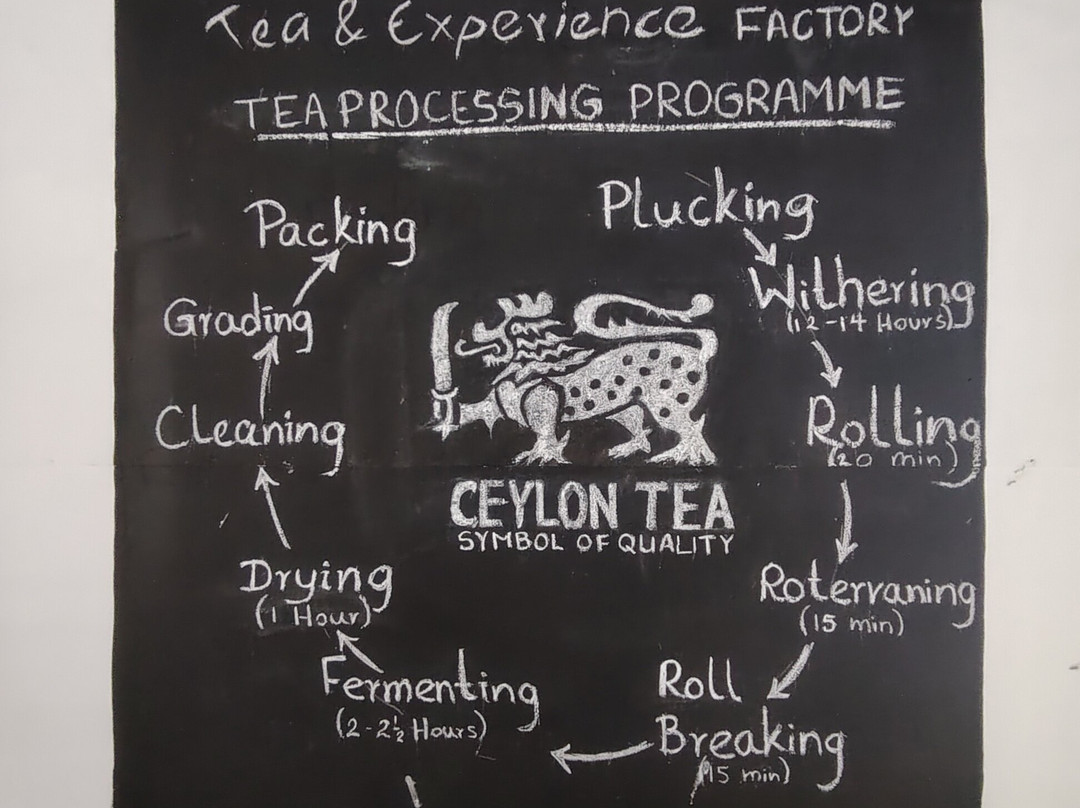 Tea & Experience FACTORY
TEA PROCESSING PROGRAMME
Plucking
Withering
(12-14 Hours)
Rolling
(20 min)
Rotervaning
(15 min)
Roll
Breaking
(15 min)
Fermenting
(2-2½ Hours)
Drying
(1 Hour)
Cleaning
Grading
Packing
CEYLON TEA
SYMBOL OF QUALITY